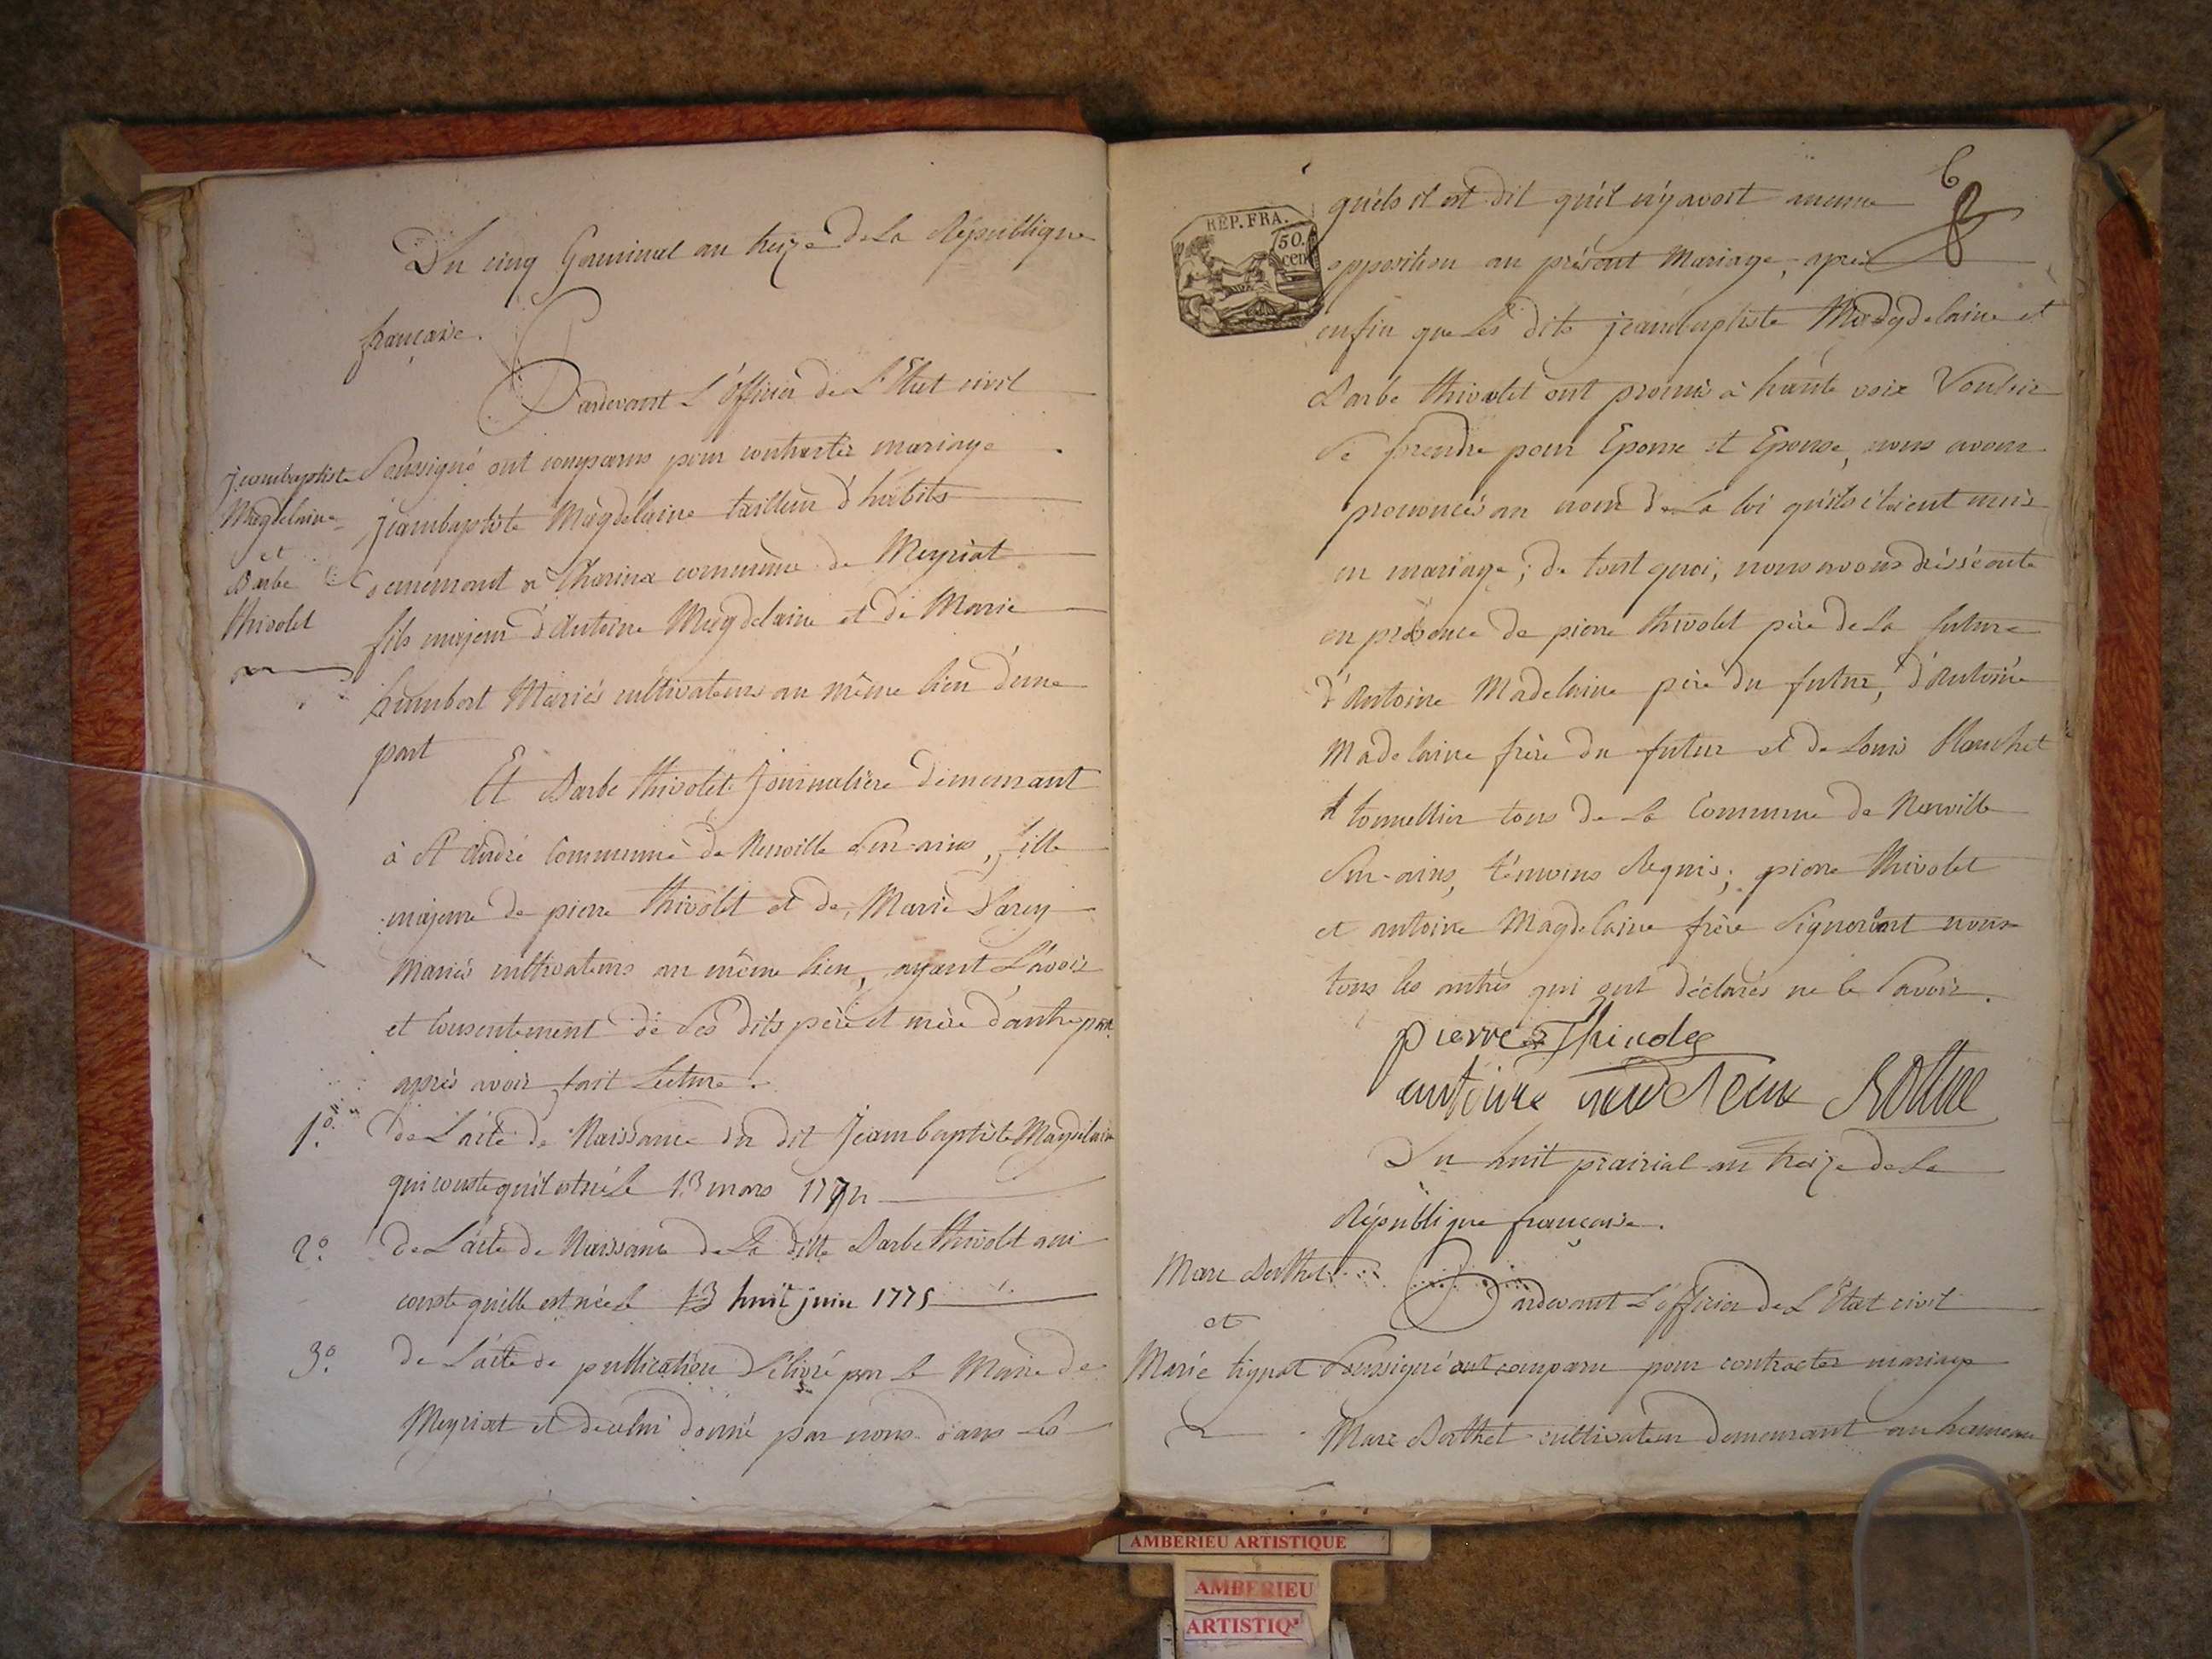 Du cinq Germinal an treize de la République
française.
Pardevant L'officier de L'Etat civil
Jeanbaptiste
Magdelaine
et
Barbe
thivolet
Soussigné ont comparus pour contracter mariage
jeanbaptiste Magdelaine tailleur d'habits
demeurant a commune de Meyriat
fils majeur d'Antoine Magdelaine et de Marie
humbert Mariés cultivateurs au même lieu d'une
part
Et Barbe thivolet Journalière demeurant
à St andré Commune de Neuville Sur-ains, fille
majeure de pierre thivolet et de Marie
Mariés cultivateurs au même lieu, ayant L'avoir
et Consentement de Ses dits père et mère d'autre part
après avoir fait Lecture.
1º. de L'acte de Naissance du dit Jeanbaptiste Magdelaine
qui conste qu'il est né le 13 mars
2º. de L'acte de Naissance de La ditte Barbe thivolet qui
conste qu'elle est née le 13 huit juin 1775
3º. de L'acte de publication délivré par le Maire de
Meyriat et de celui donné par nous dans les
6
REP. FRA.
50.
cen
quels il est dit qu'il n'y avoit aucune
opposition au présent Mariage, après
enfin que Les dits jeanbaptiste Magdelaine et
Barbe thivolet ont promis à haute voix Vouloir
Se prendre pour Epoux et Epouse, nous avons
prononcés au nom de La loi qu'ils étoient unis
en mariage; de tout quoi, nous avons dréssé acte
en présence de pierre thivolet père de La future
d'Antoine Madelaine père du futur, d'Antoine
Madelaine frère du futur et de Louis
tonnellier tous de La Commune de Neuville
Sur-ains, témoins Requis; pierre thivolet
et antoine Magdelaine frère Signeront nous
tous les autres qui ont déclarés ne le Savoir.
pierre Thivolet
antoine
Du huit prairial an treize de La
République française.
Marc Berthet
et
Marie tignat
Pardevant L'officier de L'Etat civil
Soussigné ont comparu pour contracter mariage
Marc Berthet cultivateur demeurant au hameau
AMBERIEU ARTISTIQUE
AMBERIEU
ARTISTIQ